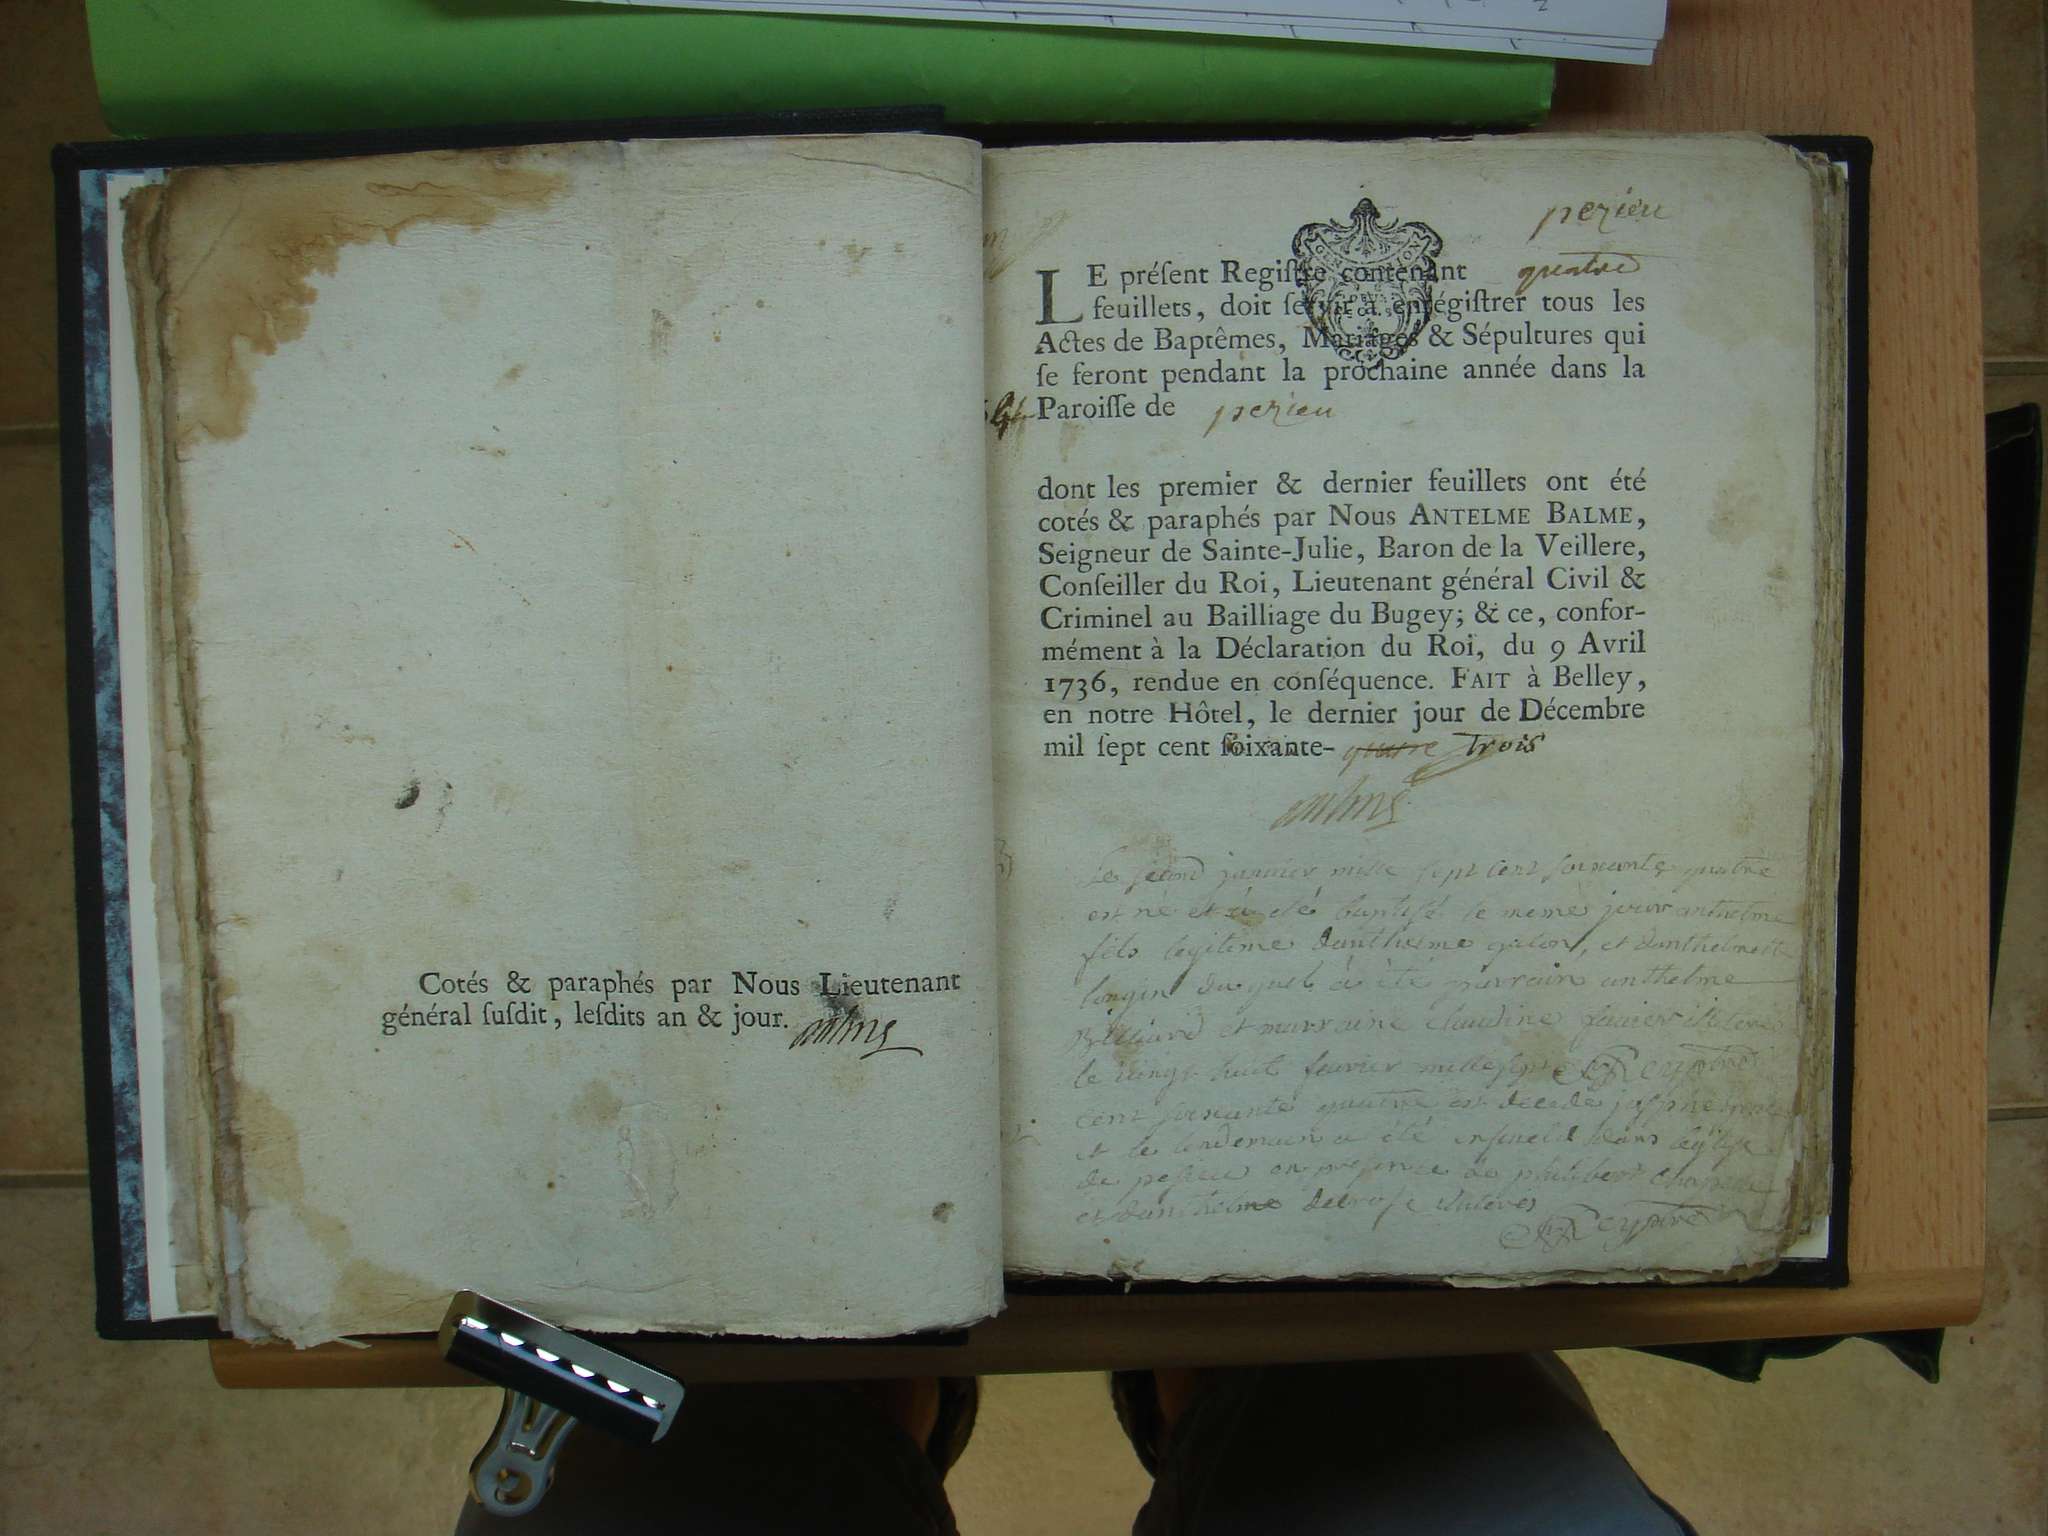 Cotés & paraphés par Nous Lieutenant
général ſuſdit, leſdits an & jour.
pezieu
LE préſent Regiſtre contenant quatre
feuillets, doit ſervir à enrégiſtrer tous les
Actes de Baptêmes, Mariages & Sépultures qui
ſe feront pendant la prochaine année dans la
Paroiſſe de pezieu
dont les premier & dernier feuillets ont été
cotés & paraphés par Nous ANTELME BALME,
Seigneur de Sainte-Julie, Baron de la Veillere,
Conſeiller du Roi, Lieutenant général Civil &
Criminel au Bailliage du Bugey; & ce, confor-
mément à la Déclaration du Roi, du 9 Avril
1736, rendue en conſéquence. FAIT à Belley,
en notre Hôtel, le dernier jour de Décembre
mil ſept cent ſoixante- quatre trois
Le second janvier mille sept cent soixante quatre
est né et à été baptisé le meme jour anthelme
fils legitime d'anthelme et d'anthelmette
longin du quel à été parrain anthelme
et marraine claudine
le vingt huit fevrier mille sept
cent soixante quatre est decedé
et le lendemain a été dans leglise
de pesieu en presence de philibert
et d'anthelme